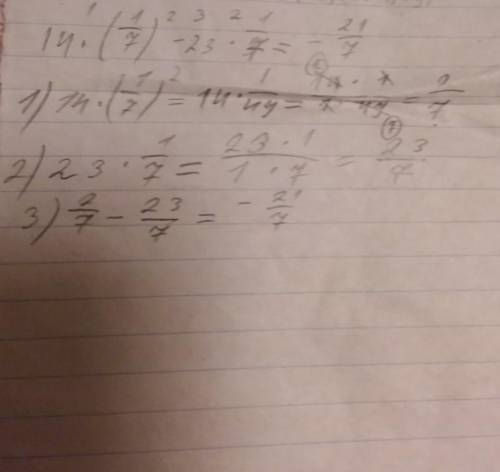 14 · (1/7)² - 23 · 1/7 = - 21/7
1) 14 · (1/7)² = 14 · 1/49 = 14 · 1 / 1 · 49 = 2/7
2) 23 · 1/7 = 23 · 1 / 1 · 7 = 23/7
3) 2/7 - 23/7 = - 21/7